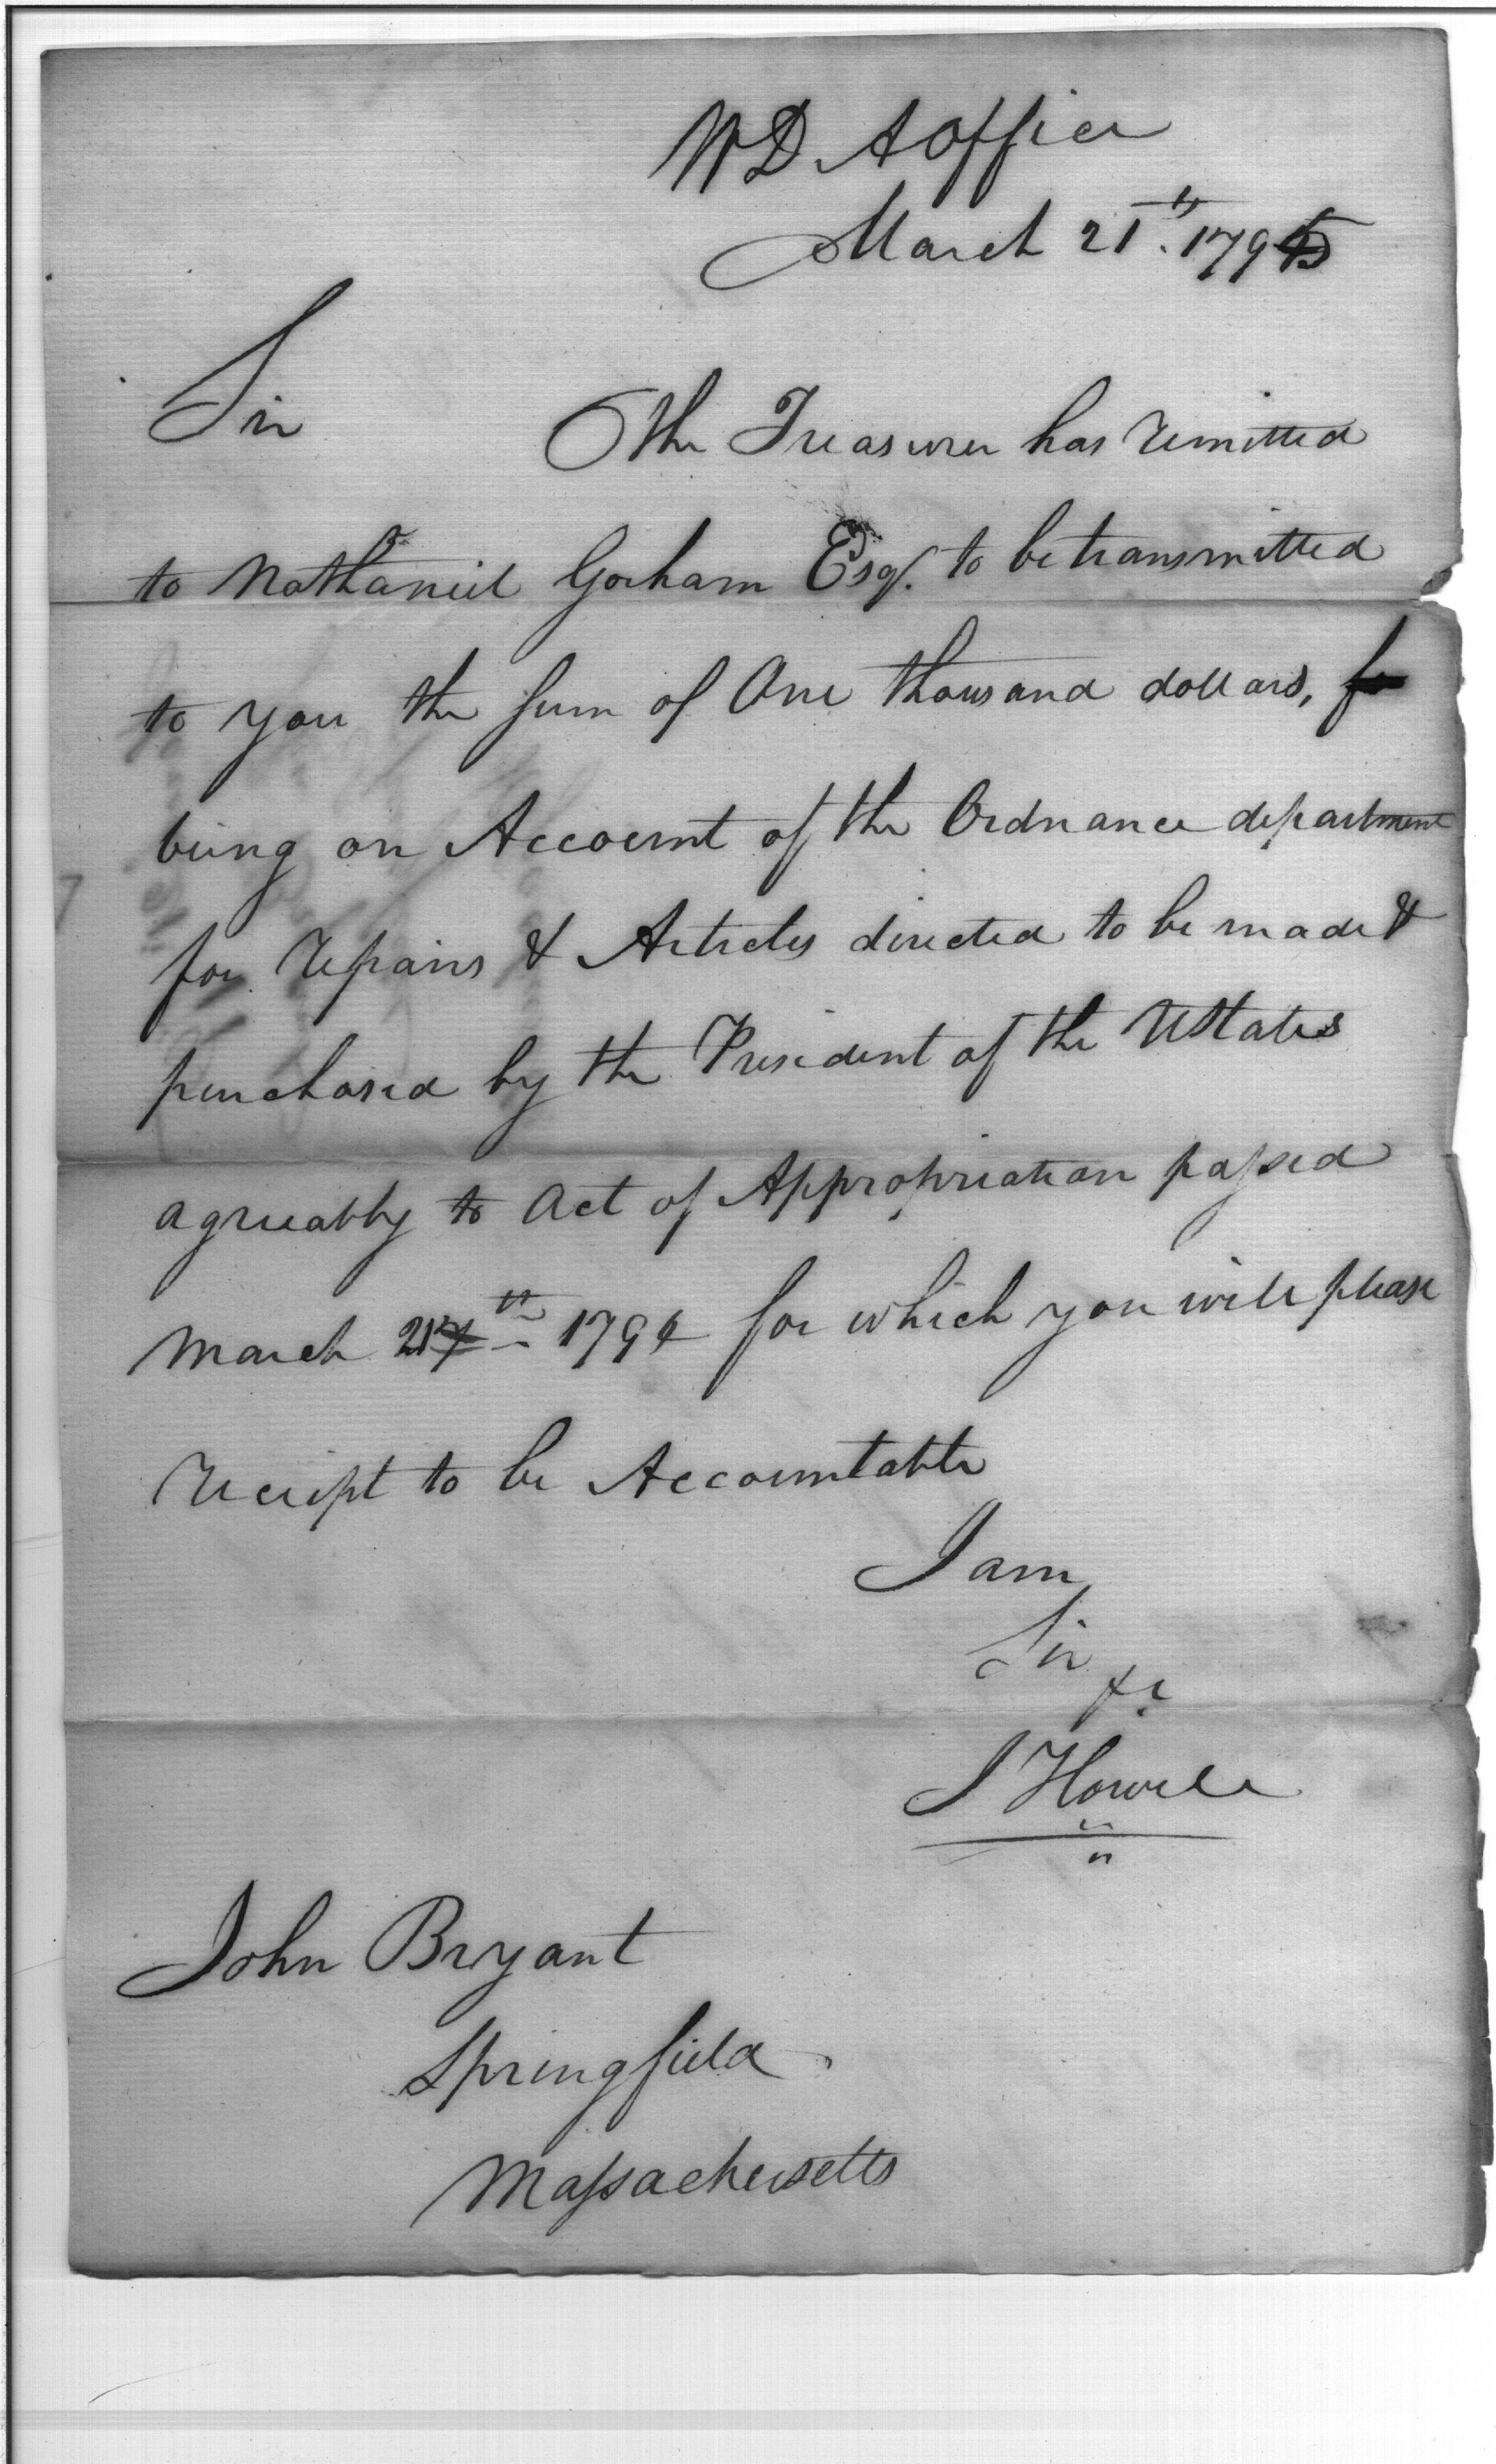 WD A Office
March 21th. 1795
Sir The Treasurer has remitted
to Nathaniel Gorham Esqr. to be transmitted
to you the sum of One thousand dollars,
being on Account of the Ordnance department
for repairs & Articles directed to be made &
purchased by the President of the UStates
agreeably to Act of Appropriation passed
March 21th 1794 for which you will please
receipt to be Accountable
I am
Sir
&c
J Howell
John Bryant
Springfield
Massachusetts